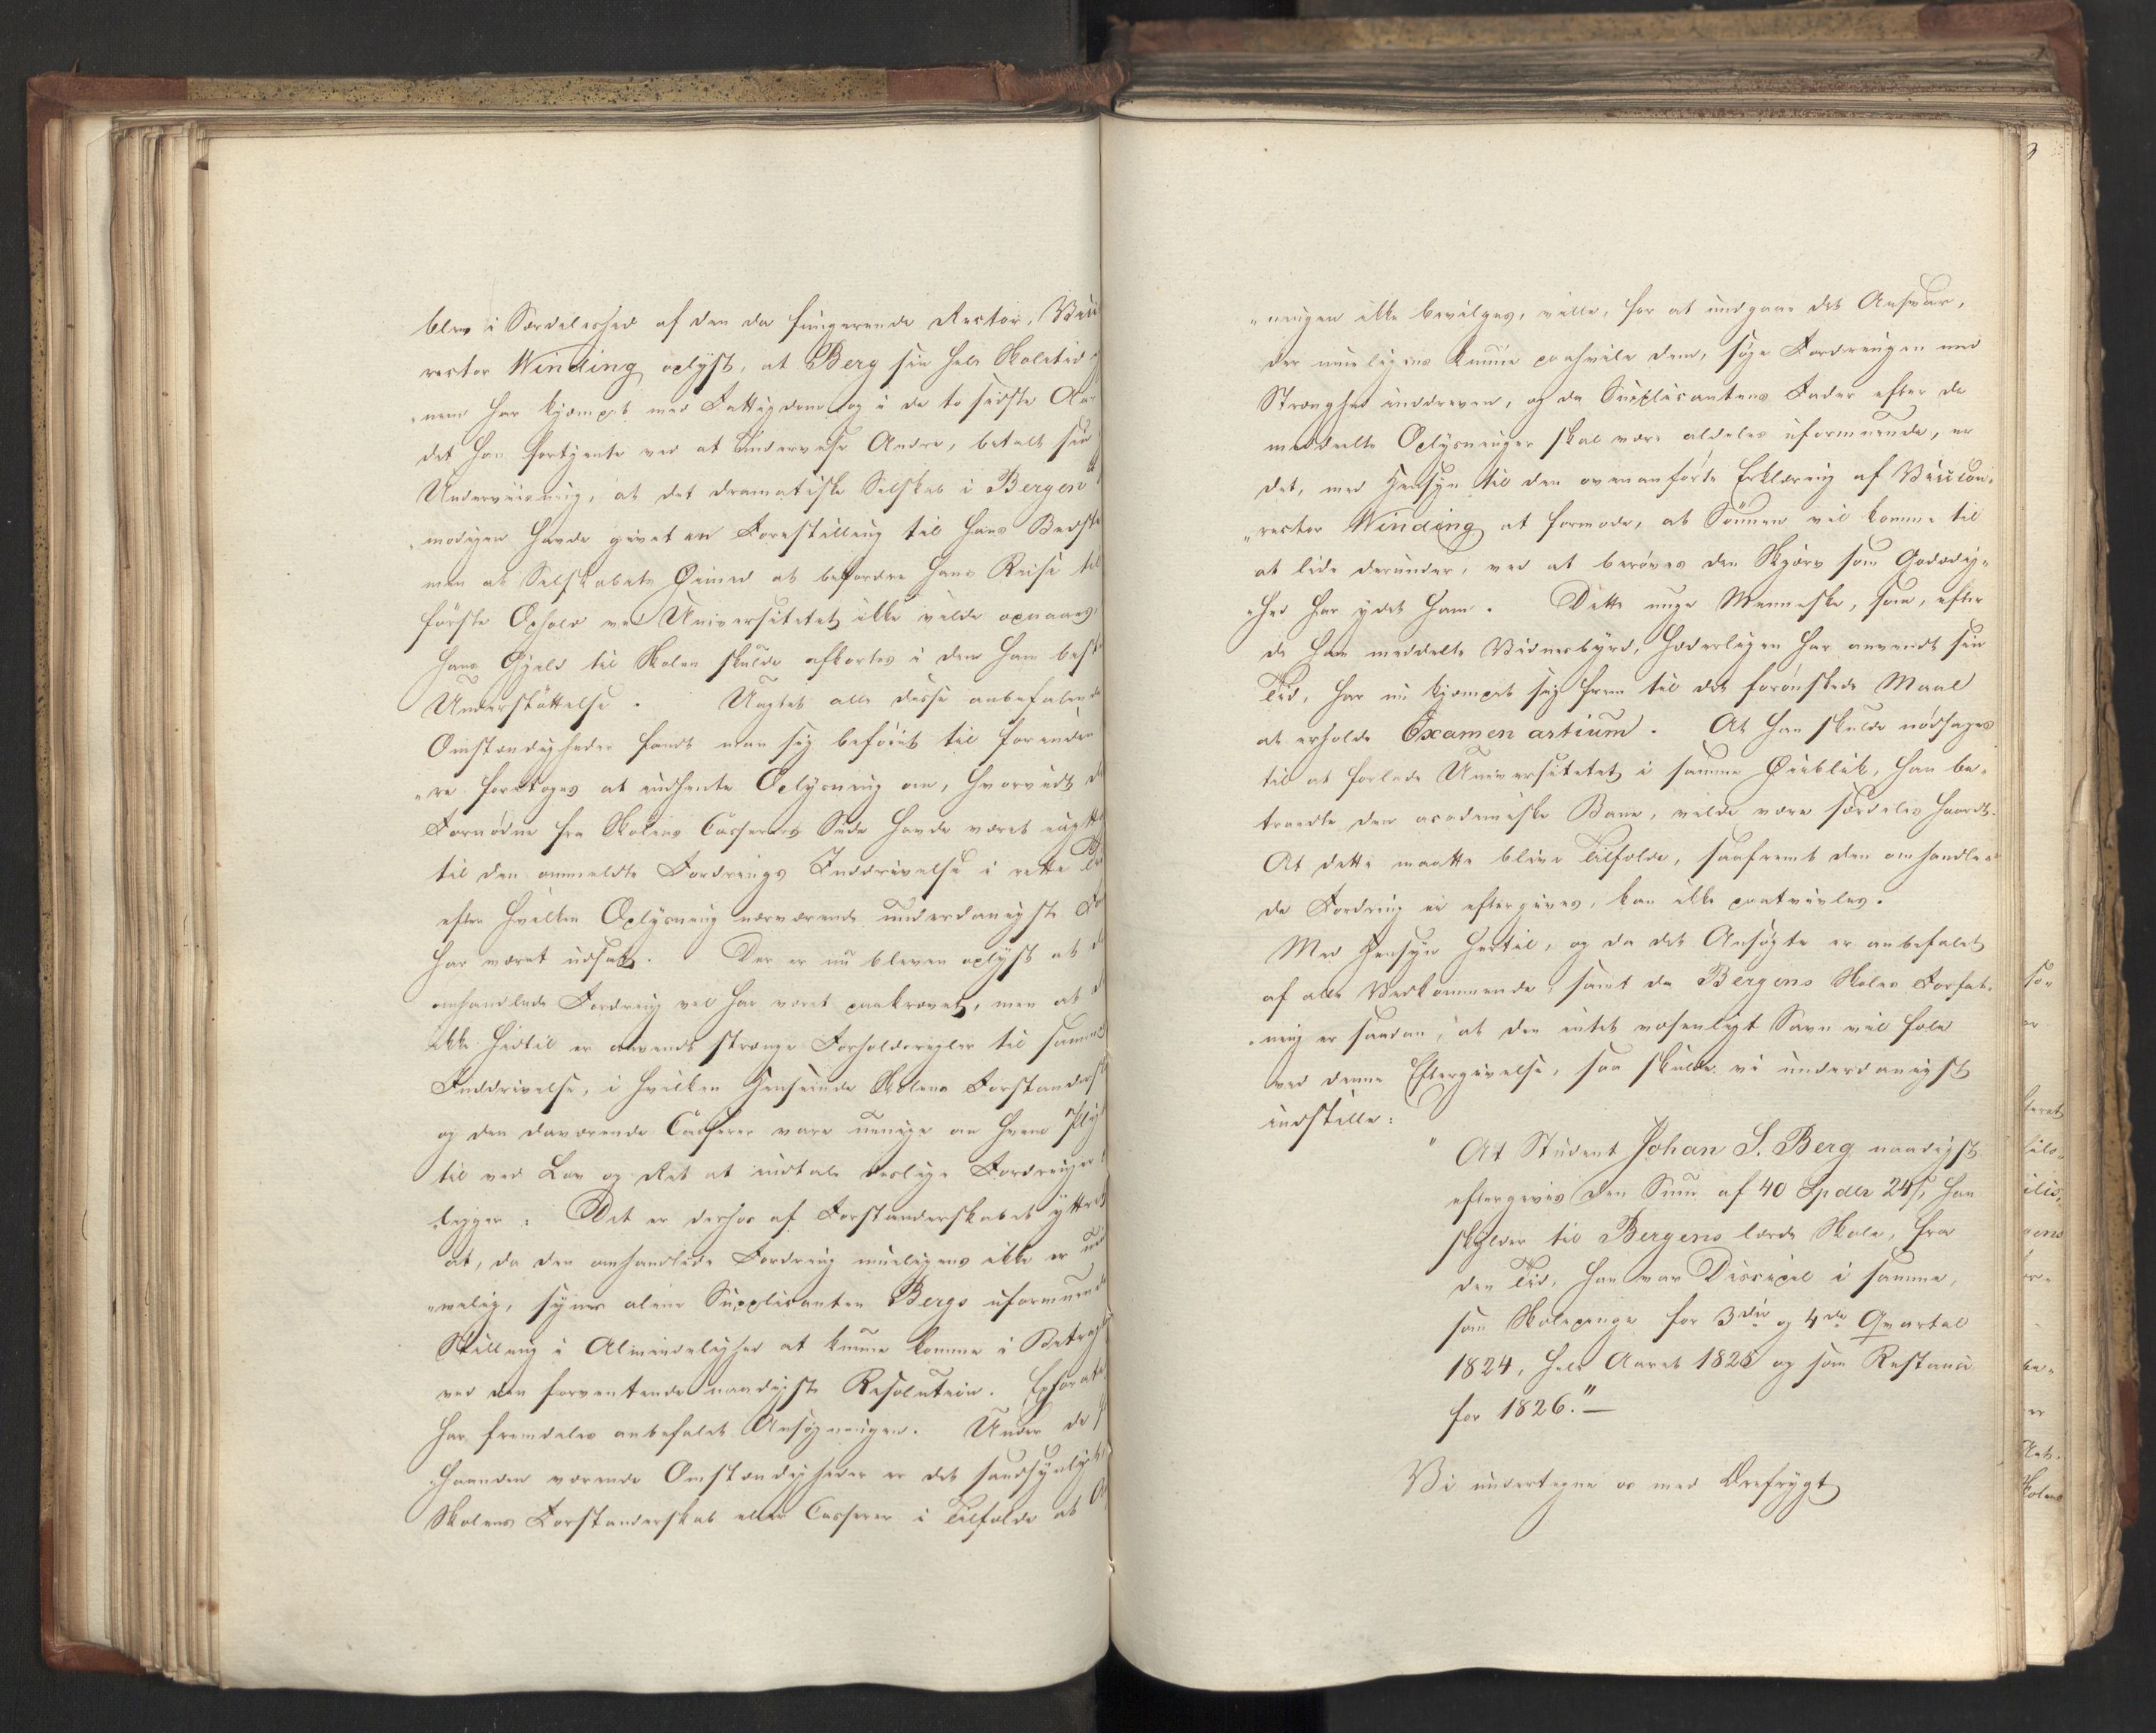 blev i Særdeleshed af den da fungerende Rector, Vice
rector Winding oplyst, at Berg sin hele Skoletid
nem har kjæmpet med Fattigdom og i de to sidste Aar
det han fortjente ved at undervise Andre, betalt sin
Underviisning, at det dramatiske Selskab i Bergen
modigen havde givet en Forestilling til hans Bedste
men at Selskabets Øiemed at befordre hans Reise til
förste Ophold ved Universitetet ikke vilde opnaaes,
hans Gjeld til Skolen skulde afkortes i den ham best
Understöttelse. Uagtet alle disse anbefalende
Omstændigheder fandt man sig beföiet til forinden
„re foretoges at indhente Oplysning om, hvorvidt d
Fornödne fra Skolens Casserers Side havde været iagtt
til den anmeldte Fordrings Inddrivelse i rette Tid
efter hvilken Oplysning nærværende underdanigste
har været udsat. Der er nu bleven oplyst at d
omhandlede Fordring vel har været paakrævet, men at
ikke hidtil er anvendt strænge Forholdsregler til samme
Inddrivelse, i hvilken Henseende Skolens Forstandersk
og den daværende Casserer vare uenige om hvem Plig
til ved Lov og Ret at indtale deslige Fordringer
ligger. Det er derhos af Forstanderskabet yttret
at, da den omhandlede Fordring mueligens ikke er
„vælig, synes alene Supplicanten Bergs uformuende
Stilling i Almindelighed at kunne komme i Betragt
ved den forventende naadigste Resolution. Ephorate
har fremdeles anbefalet Ansögningen. Under de
haanden værende Omstændigheder er det sandsynligt
Skolens Forstanderskab eller Casserer i Tilfælde at
„ningen ikke bevilges, ville, for at undgaae det Ansvar,
der mueligens kunne paahvile dem, söge Fordringen med
Strenghed inddreven, og da Supplicantens Fader efter de
meddeelte Oplysninger skal være aldeles uformuende, er
det, med Hensyn til den ovenanförte Erklæring af Vicecon„
„rector Winding at formode, at Sönnen vil komme til
at lide derunder, ved at beröves den Skjærv som Goddædig„
„hed har ydet ham. Dette unge Menneske, som, efter
de ham meddelte Vidnesbyrd, hæderligen har anvendt sin
Tid, har nu kjæmpet sig frem til det forönskede Maal
at erholde Examen artium. At han skulde nödsages
til at forlade Universitetet i samme Øieblik, han be„
traadte den academiske Bane, vilde være særdeles haardt.
At dette maatte blive Tilfælde, saafremt den omhandle„
de Fordring ei eftergives, kan ikke paatvivles.
Med Hensyn hertil, og da det Ansögte er anbefalet
af alle Vedkommende, samt da Bergens Skoles Forfat„
„ning er saadan, at den intet væsenligt Savn vil föle
ved denne Eftergivelse, saa skulde vi underdanigst
indstille:
" At Student Johan S. Berg naadigst
eftergives den Sum af 40 Spdlr 24 ß, han
skylder til Bergens lærde Skole, fra
den Tid, han var Discipel i samme,
som Skolepenge for 3die og 4de Qvartal
1824, hele Aaret 1825 og som Restance
for 1826." —
Vi undertegne os med Ærefrygt